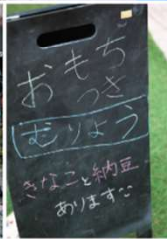 おもち
つき
むりょう
きなこと納豆
あります